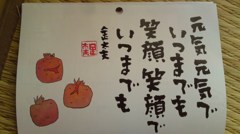 元気元気で
いつまでも
笑顔笑顔で
いつまでも